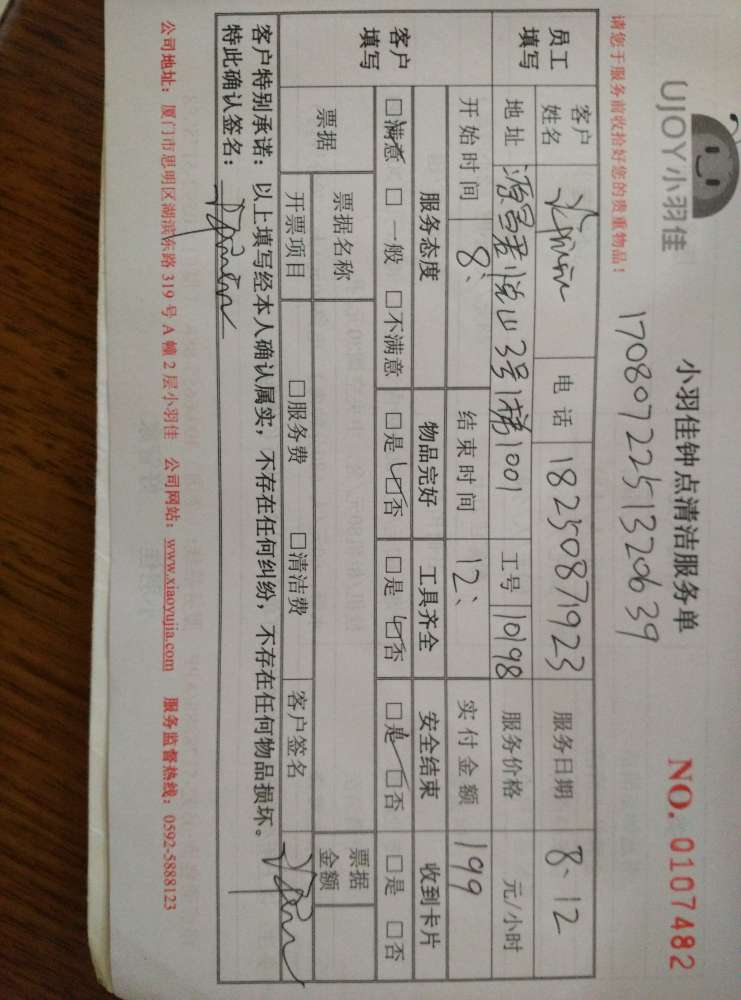 UJOY小羽佳
小羽佳钟点清洁服务单
NO. 0107482
1708072251320639
请您于服务前收拾好您的贵重物品!
员工填写 客户姓名 电话 18250871923 服务日期 8、12
地址 源昌君悦山3号1梯1001 工号 10198 服务价格 元/小时
开始时间 8: 结束时间 12、 实付金额 199
客户填写 服务态度 物品完好 工具齐全 安全结束 收到卡片
□满意 □一般 □不满意 □是 □否 □是 □否 □是 □否 □是 □否
票据 票据名称 票据金额
开票项目 □服务费 □清洁费 客户签名
客户特别承诺:以上填写经本人确认属实,不存在任何纠纷,不存在任何物品损坏。
特此确认签名:
公司地址:厦门市思明区湖滨东路 319 号 A 幢 2 层小羽佳 公司网站:www.xiaoyujia.com 服务监督热线:0592-5888123